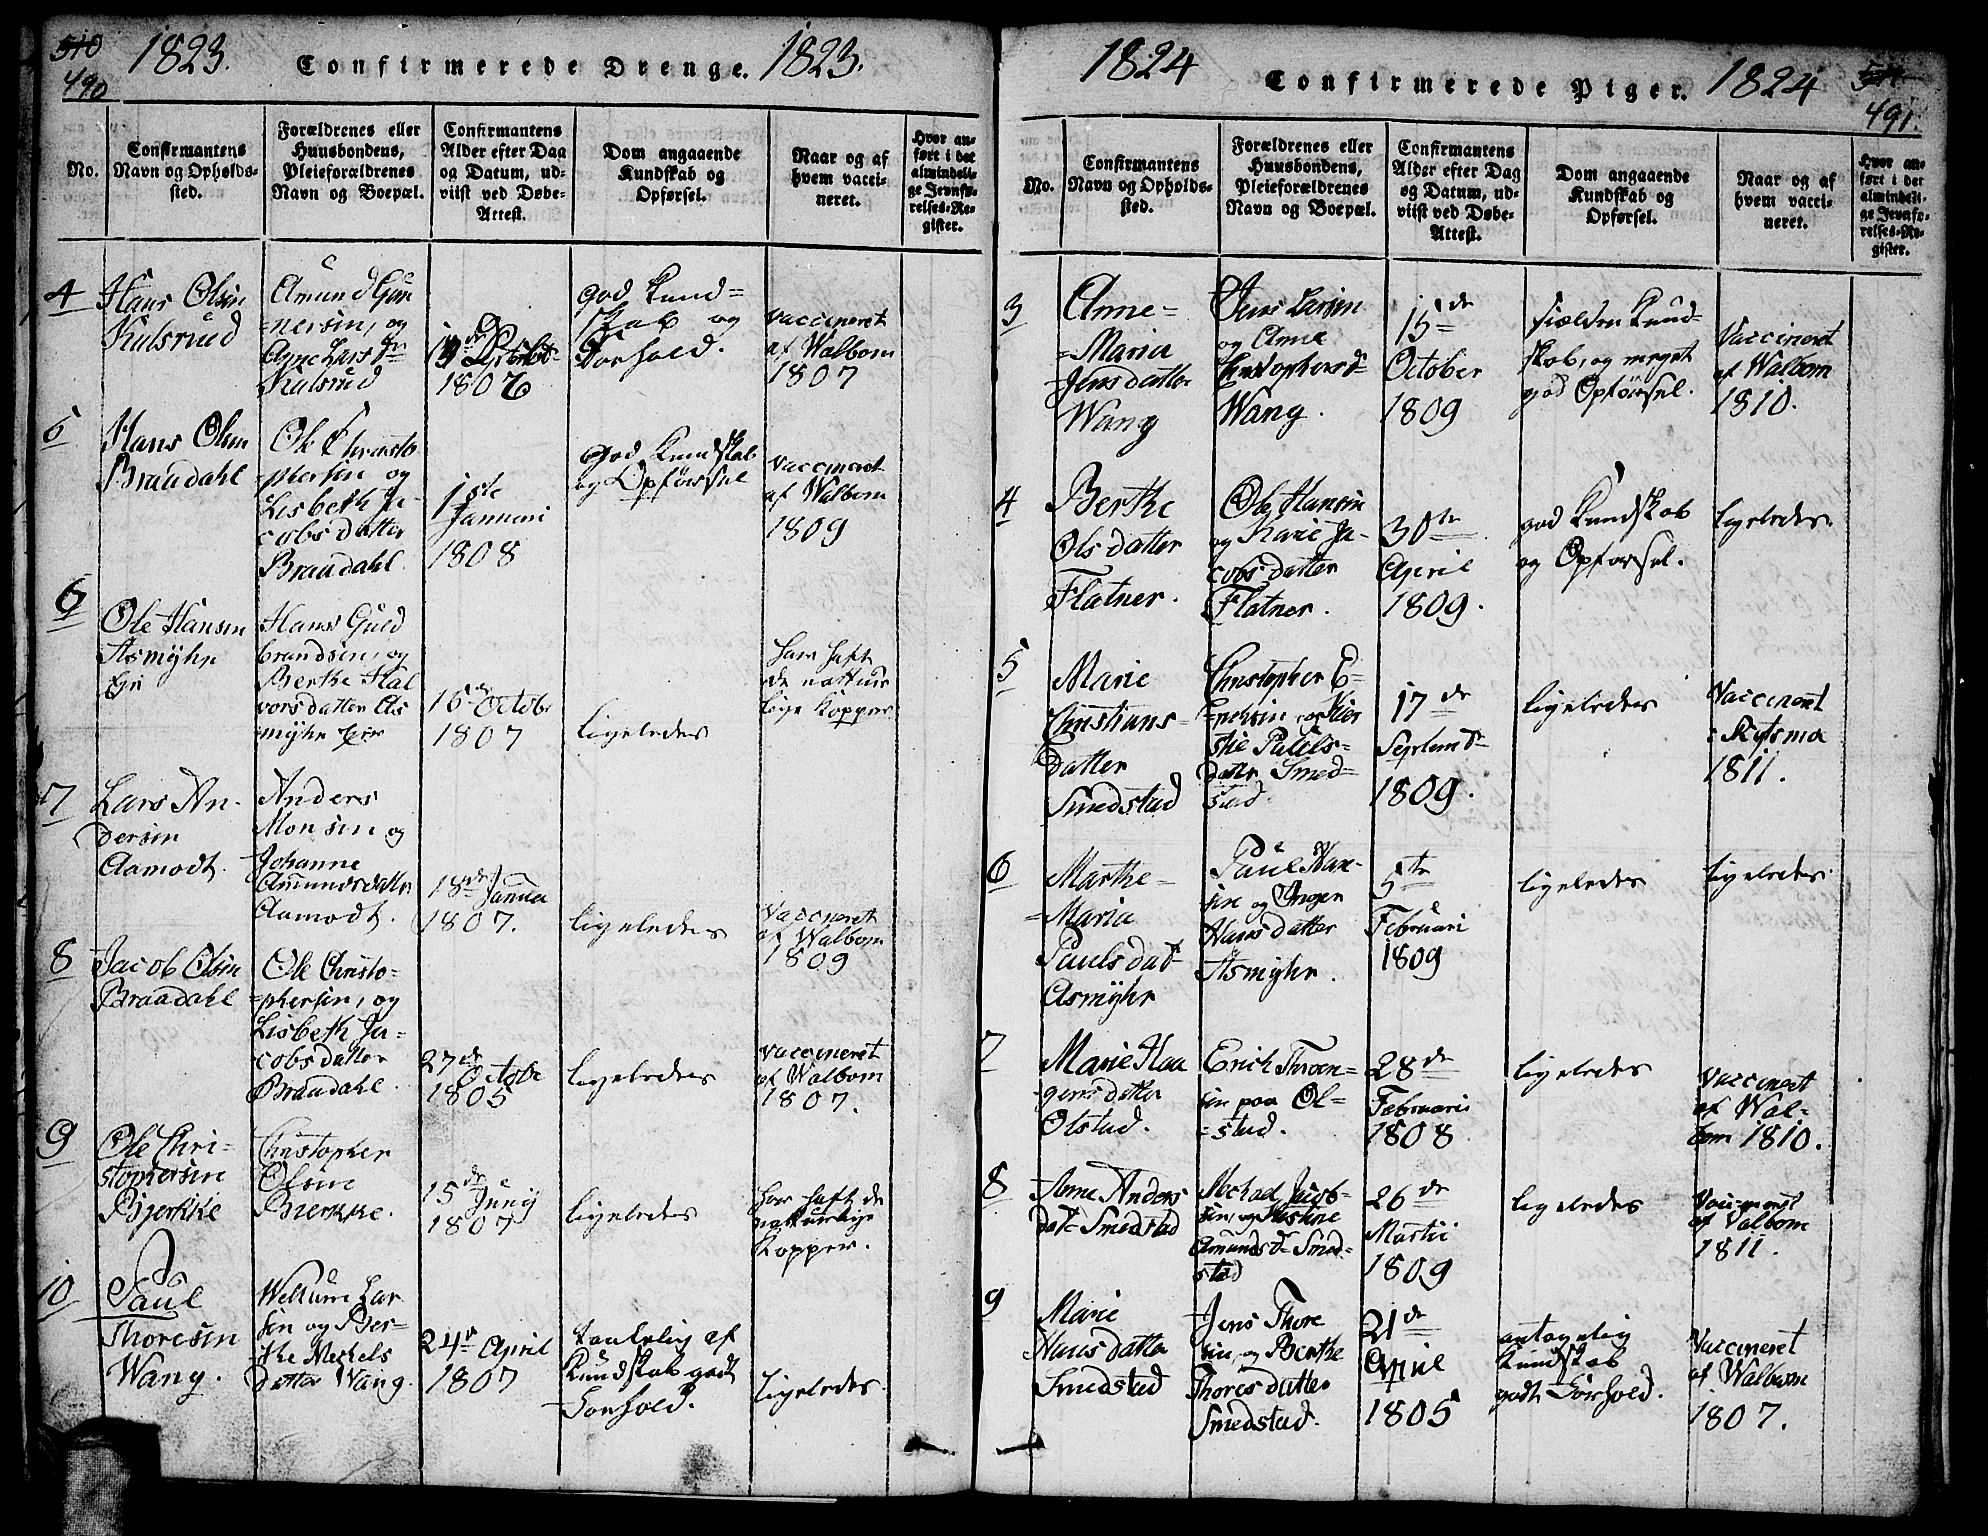 510
490
1823.
Confirmerede Drenge.
1823.
No.
Confirmantens
Navn og Opholds-
sted.
Forældrenes eller
Huusbondens,
Pleieforældrenes
Navn og Boepæl.
Confirmantens
Alder efter Dag
og Datum, ud-
viist ved Døbe-
Attest.
Dom angaaende
Kundskab og
Opførsel.
Naar og af
hvem vacci-
neret.
Hvor an-
ført i det
almindeli-
ge Jevnfø-
relses-Re-
gister.
4
Hans Olsen
Kulsrud
Amund Gun
nersen, og
Agne Lars Dr
Kulsrud
1806
god Kund=
skab og
Forhold.
vaccineret
af Walbom
1807
5
Hans Olsen
Braadahl
Ole Christo
phersen og
Lisbeth Ja
cobsdatter
Braadahl.
1ste
Januari
1808
god Kundskab
og Opførsel
vaccineret
af Walbom
1809
6
Ole Hansen
Asmyhr
Eri
Hans Guld
brandsen, og
Berthe Hal
vorsdatter As
myhr Eie
16de Octobr
1807
ligeledes
har haft
de nattur
lige Kopper
7
Lars An-
dersen
Aamodt.
Anders
Monsen og
Johanne
Amundsdatter
Aamodt.
18de Janua
1807.
ligeledes
Vaccineret
af Walbom
1809
8
Jacob Olsen
Braadahl
Ole Christo=
=phersen, og
Lisbeth Ja=
cobsdatter
Braadahl.
27de
Octobr
1805
ligeledes
vaccineret
af Walbom
1807.
9
Ole Chri-
stophersen
Bjerkke
Christopher
Olsen
Bierkke.
15de
Junij
1807
ligeledes
har haft de
naturlige
Kopper.
10
Paul
Thoresen
Wang.
Lar
sen og Ber=
the Mekels
datter Wang.
24de April
1807
taalelig af
Kundskab godt
Forhold.
ligeledes.
1824
Confirmerede Piger.
1824
511
491.
No.
Confirmantens
Navn og Opholds-
sted.
Forældrenes eller
Huusbondens,
Pleieforældrenes
Navn og Boepæl.
Confirmantens
Alder efter Dag
og Datum, ud-
viist ved Døbe-
Attest.
Dom angaaende
Kundskab og
Opførsel.
Naar og af
hvem vacci-
neret.
Hvor an-
ført i det
almindeli-
ge Jevnfø-
relses-Re-
gister.
3
Anne=
=Maria
Jensdatter
Wang
Jens Larsen
og Anne
Christophersd=
Wang.
15de
October
1809
sielden Kund=
skab, og meget
god Opførsel.
Vaccineret
af Walbom
1810.
4
Berthe
Olsdatter
Flatner.
Ole Hansen
og Karie Ja-
cobsdatter
Flatner.
30te
April
1809.
god Kundskab
og Opførsel.
ligeledes.
5
Marie
Christians=
datter
Smedstad
Christopher E=
og Kier
stie Pauls=
datter Smed=
stad.
17de
Septemb
1809.
ligeledes
Vaccineret
1811.
6
Marthe=
=Maria
Paulsdat
Asmyhr
Paul Han-
sen og Inger
Hansdatter
Asmyhr.
5te
Februari
1809
ligeledes
ligeledes.
7
Marie Haa
gensdatter
Olstad.
Erich Thoen-
sen paa Ol=
=stad.
28de
Februari
1808
ligeledes
Vaccineret
af Wal=
bom 1810.
8
Anne Anders
dat= Smedstad
Michael Jacob-
sen, og Kirstine
Amundsd= Smed=
stad
26de
Martii
1809
ligeledes
Vaccineret
af Valbom
1811.
9
Marie
Hansdatter
Smedstad
Jens Thore
sen, og Berthe
Thoresdatter
Smedstad.
21de
April
1805
antagelig
Kundskab
godt Forhold.
Vaccineret
af Walbom
1807.